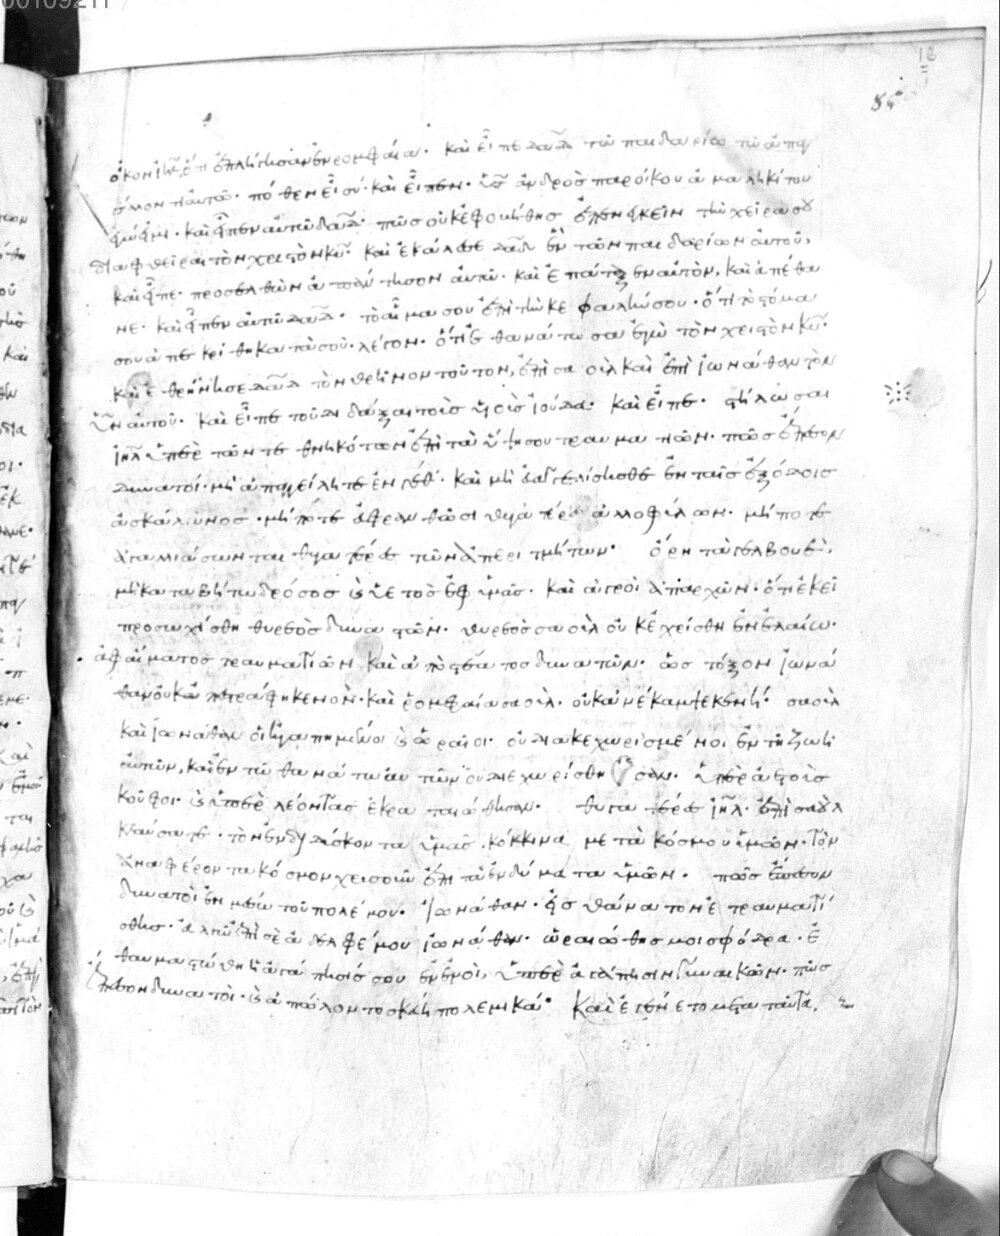 οἶκον ἰηλ, ὅτι ἐπλήγησαν ἐν ρομφαία. καὶ εἶπε δαδ τῶ παιδαρίω τῶ ἀπαγ
γέλλοντι αὐτῶ. πόθεν εἶ σύ. καὶ εἶπεν. υς ἀνδρὸς παροίκου ἀμαληκίτου
ἐγώ εἰμι. καὶ εἶπεν αὐτῶ δαδ. πῶς οὐκ ἐφοβήθης ἐπενεγκεῖν τὴν χεῖρα σου
διαφθεῖραι τὸν χριστὸν κυ. καὶ ἐκάλεσε δαδ ἓν τῶν παιδαρίων αὐτοῦ,
καὶ εἶπε. προσελθὼν ἀπάντησον αὐτῶ. καὶ ἐπάταξεν αὐτὸν, καὶ ἀπέθα
νε. καὶ εἶπεν αὐτῶ δαδ. τὸ αἷμα σου ἐπὶ τὴν κεφαλήν σου. ὅτι τὸ στόμα
σου ἀπεκρίθη κατὰ σοῦ. λέγων. ὅτι ἐθανάτωσα ἐγὼ τὸν χριστὸν κυ.
καὶ ἐθρήνησε δαδ τὸν θρῆνον τοῦτον, ἐπὶ σαοὺλ καὶ ἐπὶ ἰωνάθαν τὸν
υν αὐτοῦ. καὶ εἶπε τοῦ διδάξαι τοὺς υἱοὺς ἰούδα. καὶ εἶπε. στήλωσαι
ἰηλ ὑπὲρ τῶν τεθνηκότων ἐπὶ τὰ ὕψη σου τραυματιῶν. πῶς ἔπεσον
δυνατοί. μὴ ἀπαγγείλητε ἐν γέθ. καὶ μὴ εὐαγγελίσησθε ἐν ταῖς ἐξόδοις
ἀσκάλωνος. μήποτε εὐφρανθῶσι θυγατέρες ἀλλοφύλων. μήποτε
ἀγαλλιάσωνται θυγατέρες τῶν ἀπεριτμήτων. ὄρη τὰ γελβουὲ,
μὴ καταβήτω δρόσος καὶ ὑετὸς ἐφ ὑμᾶς. καὶ ἀγροὶ ἀπαρχῶν. ὅτι ἐκεῖ
προσωχθίσθη θυρεὸς δυνατῶν. θυρεὸς σαοὺλ οὐκ ἐχρίσθη ἐν ἐλαίω.
ἀφ αἵματος τραυματιῶν καὶ ἀπὸ στέατος δυνατῶν. ὡς τόξον ἰωνά
θαν οὐκ ἀπεστράφη κενὸν. καὶ ρομφαία σαοὺλ. οὐκ ἀνέκαμψε κενή. σαοὺλ
καὶ ἰωνάθαν οἱ ἠγαπημένοι καὶ ὡραῖοι. οὐ διακεχωρισμένοι ἐν τῆ ζωῆ
αὐτῶν, καὶ ἐν τῶ θανάτω αὐτῶν οὐ διεχωρίσθησαν. ὑπὲρ ἀετοὺς
κοῦφοι. καὶ ὑπὲρ λέοντας ἐκραταιώθησαν. θυγατέρες ἰηλ. ἐπὶ σαοὺλ
κλαύσατε. τὸν ἐνδιδύσκοντα ὑμᾶς κόκκινα μετὰ κόσμου ὑμῶν. τὸν
ἀναφέροντα κόσμον χρυσοῦν ἐπὶ τὰ ἐνδύματα ὑμῶν. πῶς ἔπεσον
δυνατοὶ ἐν μέσω τοῦ πολέμου. ἰωνάθαν. εἰς θάνατον ἐτραυματί
σθης. ἀλγῶ ἐπὶ σὲ ἀδελφέ μου ἰωνάθαν. ὡραιώθης μοι σφόδρα. ἐ
θαυμαστώθη ἡ ἀγάπησίς σου ἐν ἐμοὶ, ὑπὲρ ἀγάπησιν γυναικῶν. πῶς
ἔπεσον δυνατοὶ. καὶ ἀπώλοντο σκεύη πολεμικά. Καὶ ἐγένετο μετὰ ταῦτα,